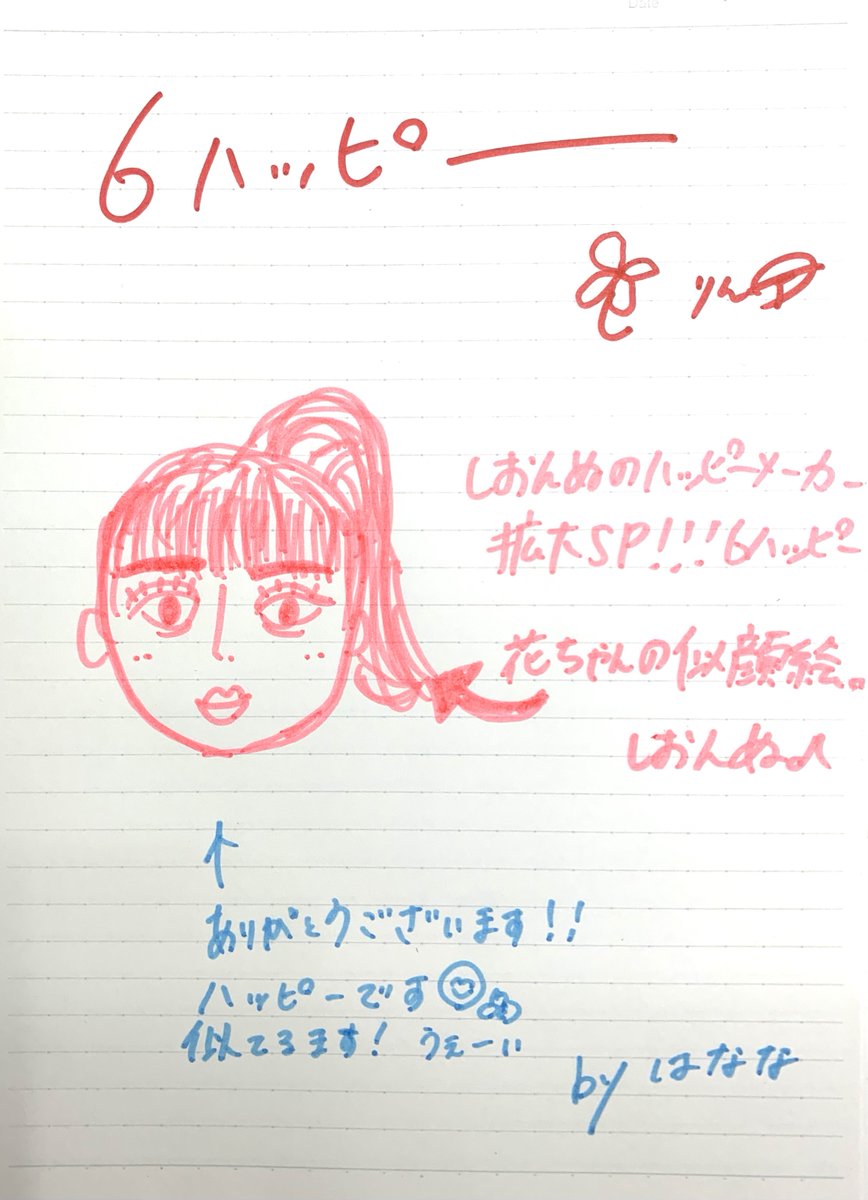 Date
6ハッピー
りんか
しおんぬのハッピーメーカー
拡大SP!!!6ハッピー
花ちゃんの似顔絵。
しおんぬより
↑
ありがとうございます!!
ハッピーです
似てるます! うぇーい
by はなな